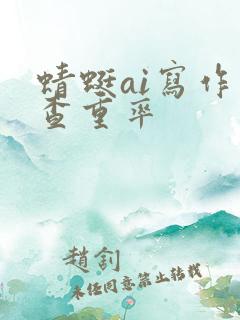 蜻蜓ai寫作
查重率
趙釗
未經同意禁止轉載